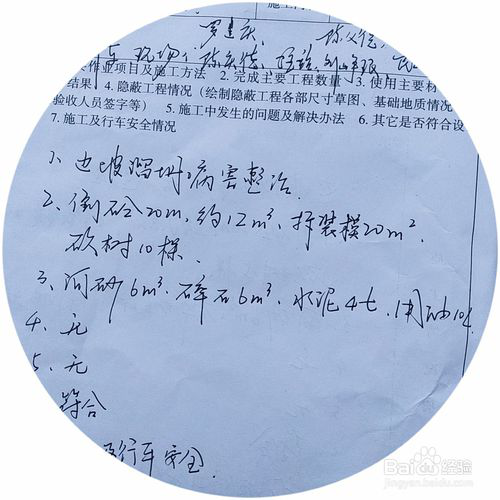 施工
作业项目及施工方法 2. 完成主要工程数量 3. 使用主要材
结果 4. 隐蔽工程情况（绘制隐蔽工程各部尺寸草图、基础地质情况
验收人员签字等） 5. 施工中发生的问题及解决办法 6. 其它是否符合设
7. 施工及行车安全情况
1、边坡溜坍病害整治.
2、倒砼20m, 约12m³, 拆装模20m²,
砍树10棵.
3、河砂6m³, 碎石6m³, 水泥4t, 油10
4、无
5、无
符合
行车安全.
Baidu经验
jingyan.baidu.com